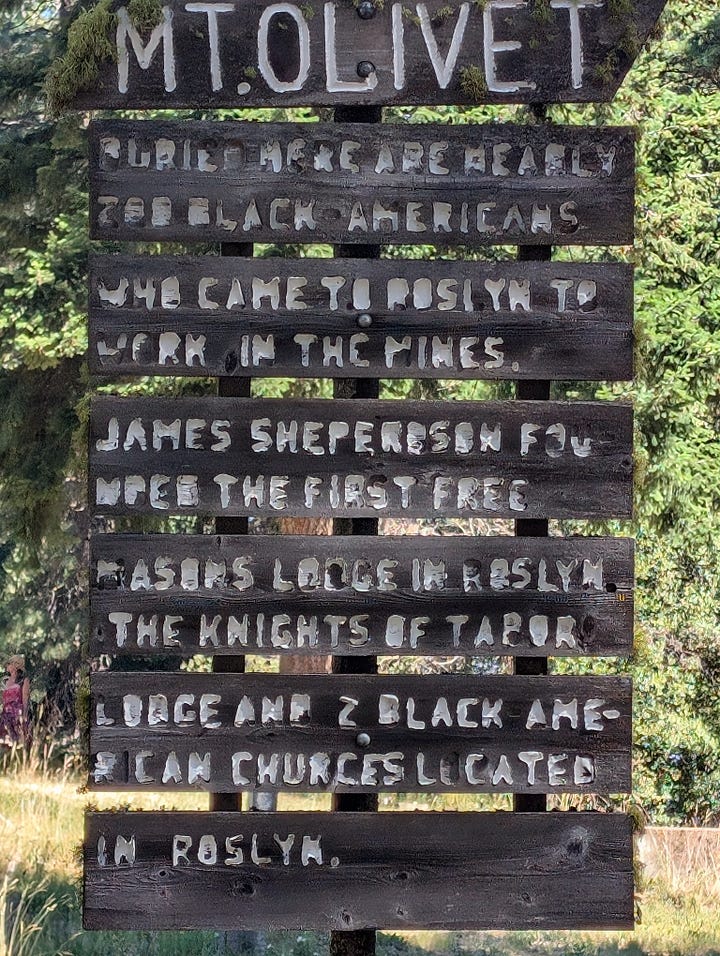 MT. OLIVET
BURIED HERE ARE NEARLY
200 BLACK AMERICANS
WHO CAME TO ROSLYN TO
WORK IN THE MINES.
JAMES SHEPERDSON FOU-
NDED THE FIRST FREE
MASONS LODGE IN ROSLYN
THE KNIGHTS OF TABOR
LODGE AND 2 BLACK AME-
RICAN CHURCES LOCATED
IN ROSLYN.